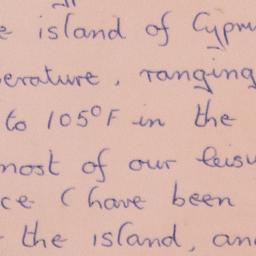 e island of Cypru
erature, ranging
to 105°F in the
most of our leisu
ce (have been
the island, an